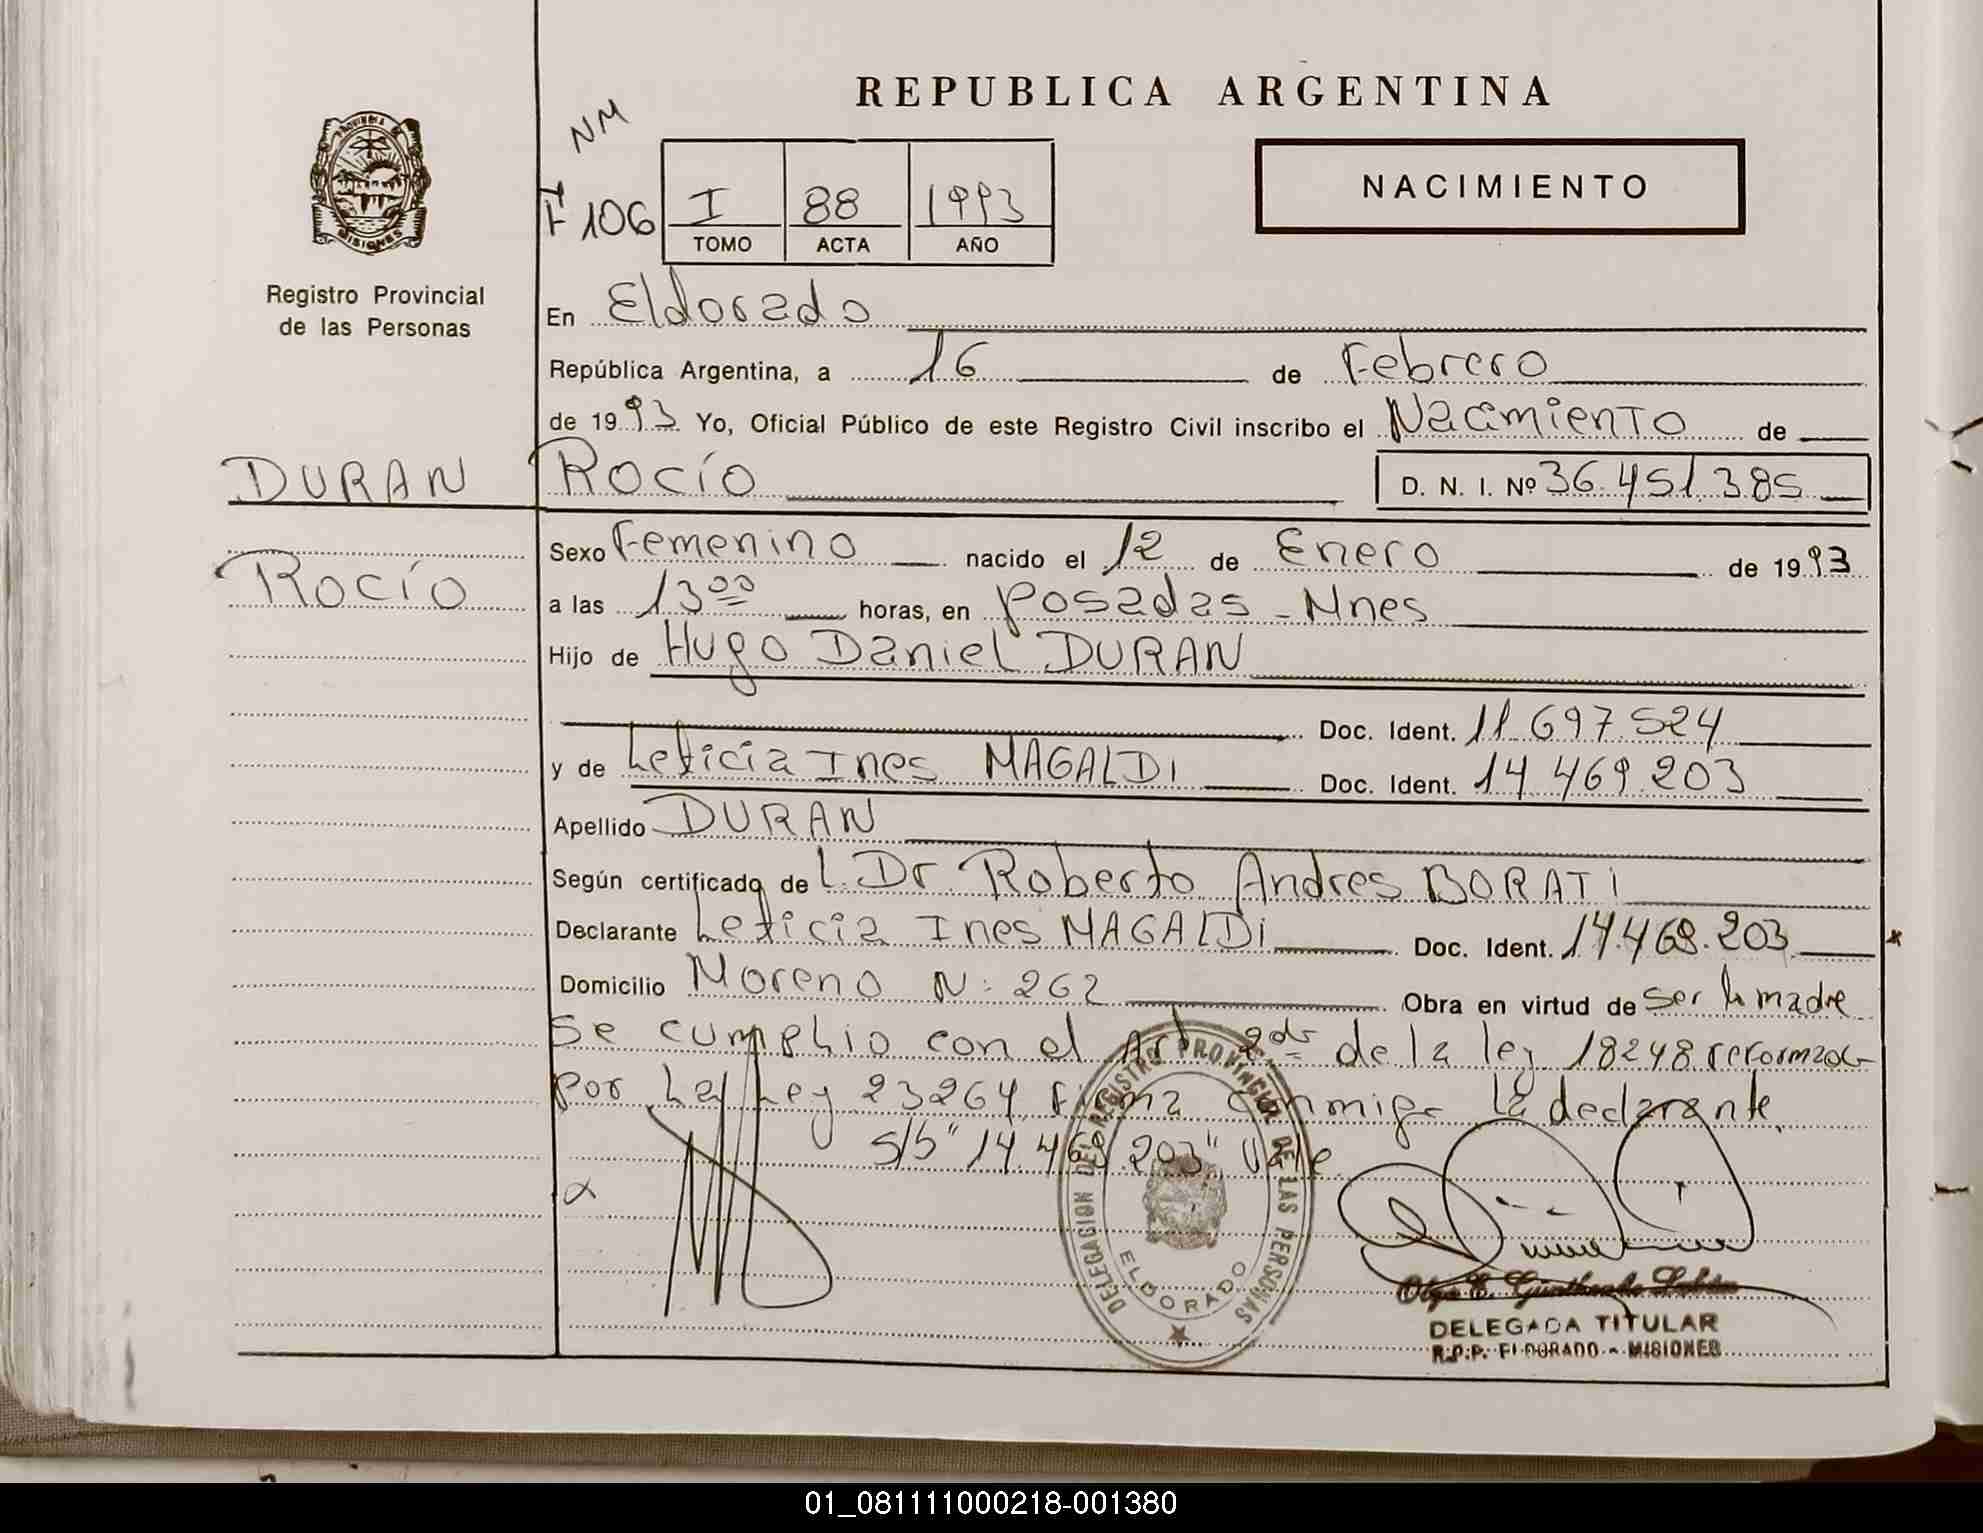 REPUBLICA ARGENTINA
NM
NACIMIENTO
F 106 I 88 1993
TOMO ACTA AÑO
PROVINCIA DE
MISIONES
Registro Provincial
de las Personas
En Eldorado
República Argentina, a 16 de Febrero
de 1993 Yo, Oficial Público de este Registro Civil inscribo el Nacimiento de
DURAN Rocío D. N. I. Nº 36.451.385
Sexo Femenino nacido el 12 de Enero de 1993
Rocío
a las 13 00 horas, en Posadas - Mnes
Hijo de Hugo Daniel DURAN
Doc. Ident. 11.697.524
y de Leticia Ines MAGALDI Doc. Ident. 14.469.203
Apellido DURAN
Según certificado de L. Dr. Roberto Andres BORATI
Declarante Leticia Ines MAGALDI Doc. Ident. 14.469.203 x
Domicilio Moreno N: 262 Obra en virtud de ser la madre
Se cumplio con el Art 2do de la ley 18248 reformada
por La Ley 23264 Firma conmigo la declarante
S/b "14.469.203" Vale
DELEGACION DEL REGISTRO PROVINCIAL DE LAS PERSONAS
ELDORADO
Olga E. Günther
DELEGADA TITULAR
R.P.P. ELDORADO - MISIONES
01_081111000218-001380